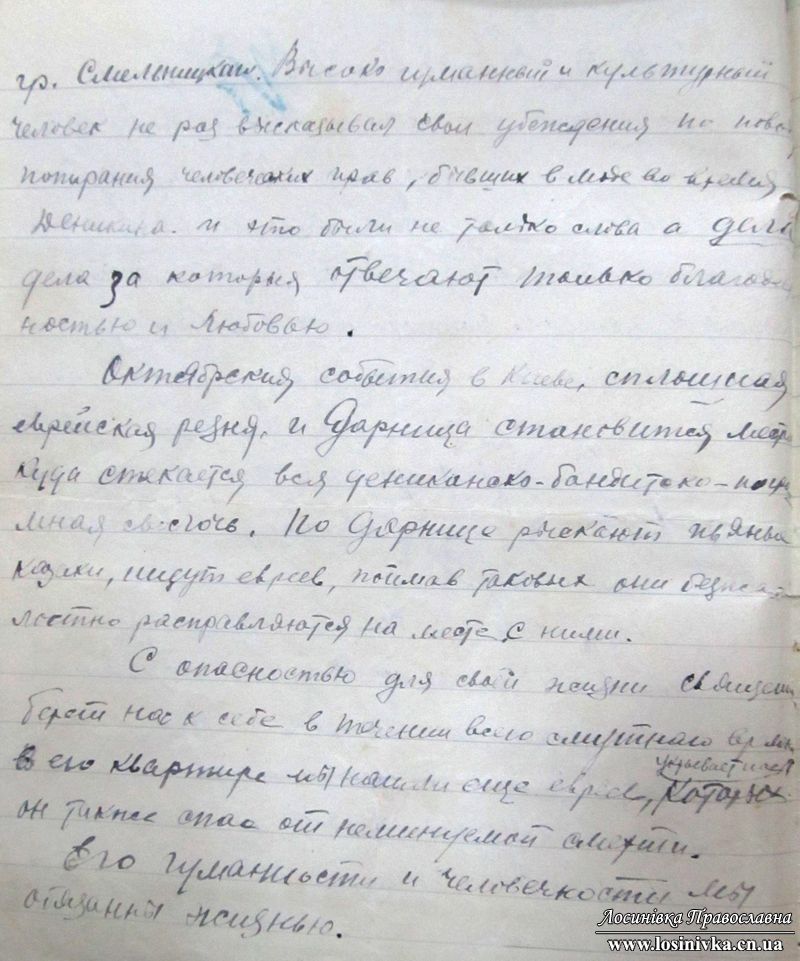 гр. Смельницкаи. Высоко гуманный и культурный
человек не раз высказывал свои убеждения по пово
попирания человеческих прав, бывших в моде во время
Деникина. и это были не только слова а дела
дела за которыя отвечают только благода
ностью и любовью.
Октябрския события в Киеве, сплошная
еврейская резня, и Дарница становится место
куда стекается вся деникинско-бандитско-погр
мная сволочь. По Дарнице рыскают пьяные
казаки, ищут евреев, поймав таковых они безжа
лостно расправляются на месте с ними.
С опасностью для своей жизни священ
берет нас к себе в течении всего смутнаго время
укрывает нас
в его квартире мы нашли еще евреев, которых
он также спас от неминуемой смерти.
Его гуманности и человечности мы
обязанны жизнью.
Лосинівка Православна
www.losinivka.cn.ua